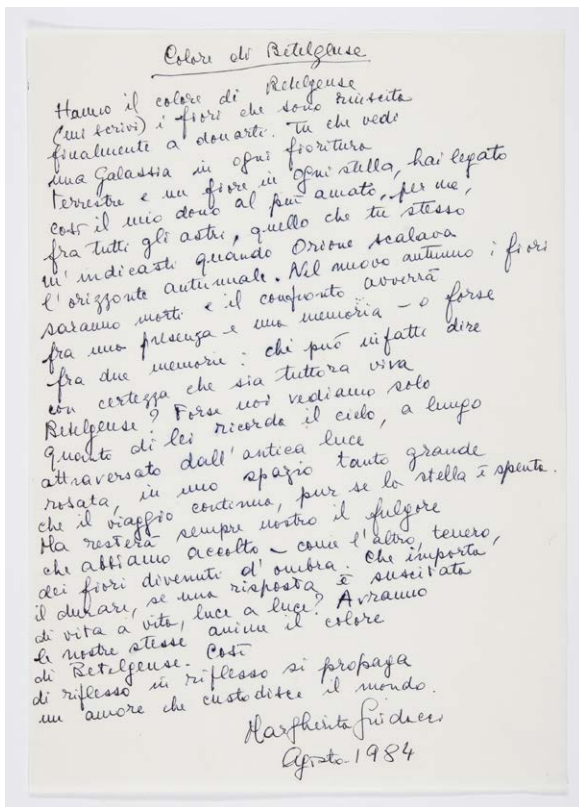 Colore di Betelgeuse
Hanno il colore di Betelgeuse
(mi scrivi) i fiori che sono riuscita
finalmente a donarti. Tu che vedi
una Galassia in ogni fioritura
terrestre e un fiore in ogni stella, hai legato
così il mio dono al più amato, per me,
fra tutti gli astri, quello che tu stesso
m'indicasti quando Orione scalava
l'orizzonte autunnale. Nel nuovo autunno i fiori
saranno morti e il confronto avverrà
fra una presenza e una memoria – o forse
fra due memorie: chi può infatti dire
con certezza che sia tuttora viva
Betelgeuse? Forse noi vediamo solo
quanto di lei ricorda il cielo, a lungo
attraversato dall'antica luce
rosata, in uno spazio tanto grande
che il viaggio continua, pur se la stella è spenta.
Ma resterà sempre nostro il fulgore
che abbiamo accolto – come l'altro, tenero,
dei fiori divenuti d'ombra. Che importa,
il durare, se una risposta è suscitata
di vita a vita, luce a luce? Avranno
le nostre stesse anime il colore
di Betelgeuse. Così
di riflesso in riflesso si propaga
un amore che custodisce il mondo.
Margherita Guidacci
Agosto 1984